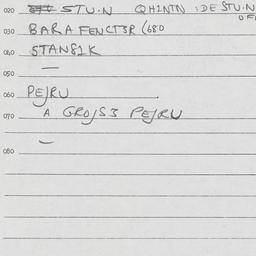 020 STU.N QHINTN :DE STU.N
OF
030 BARA FENCTSR (680
040 STANGIK
050
060 PEJRU
070 A GROJS3 PEJRU
080